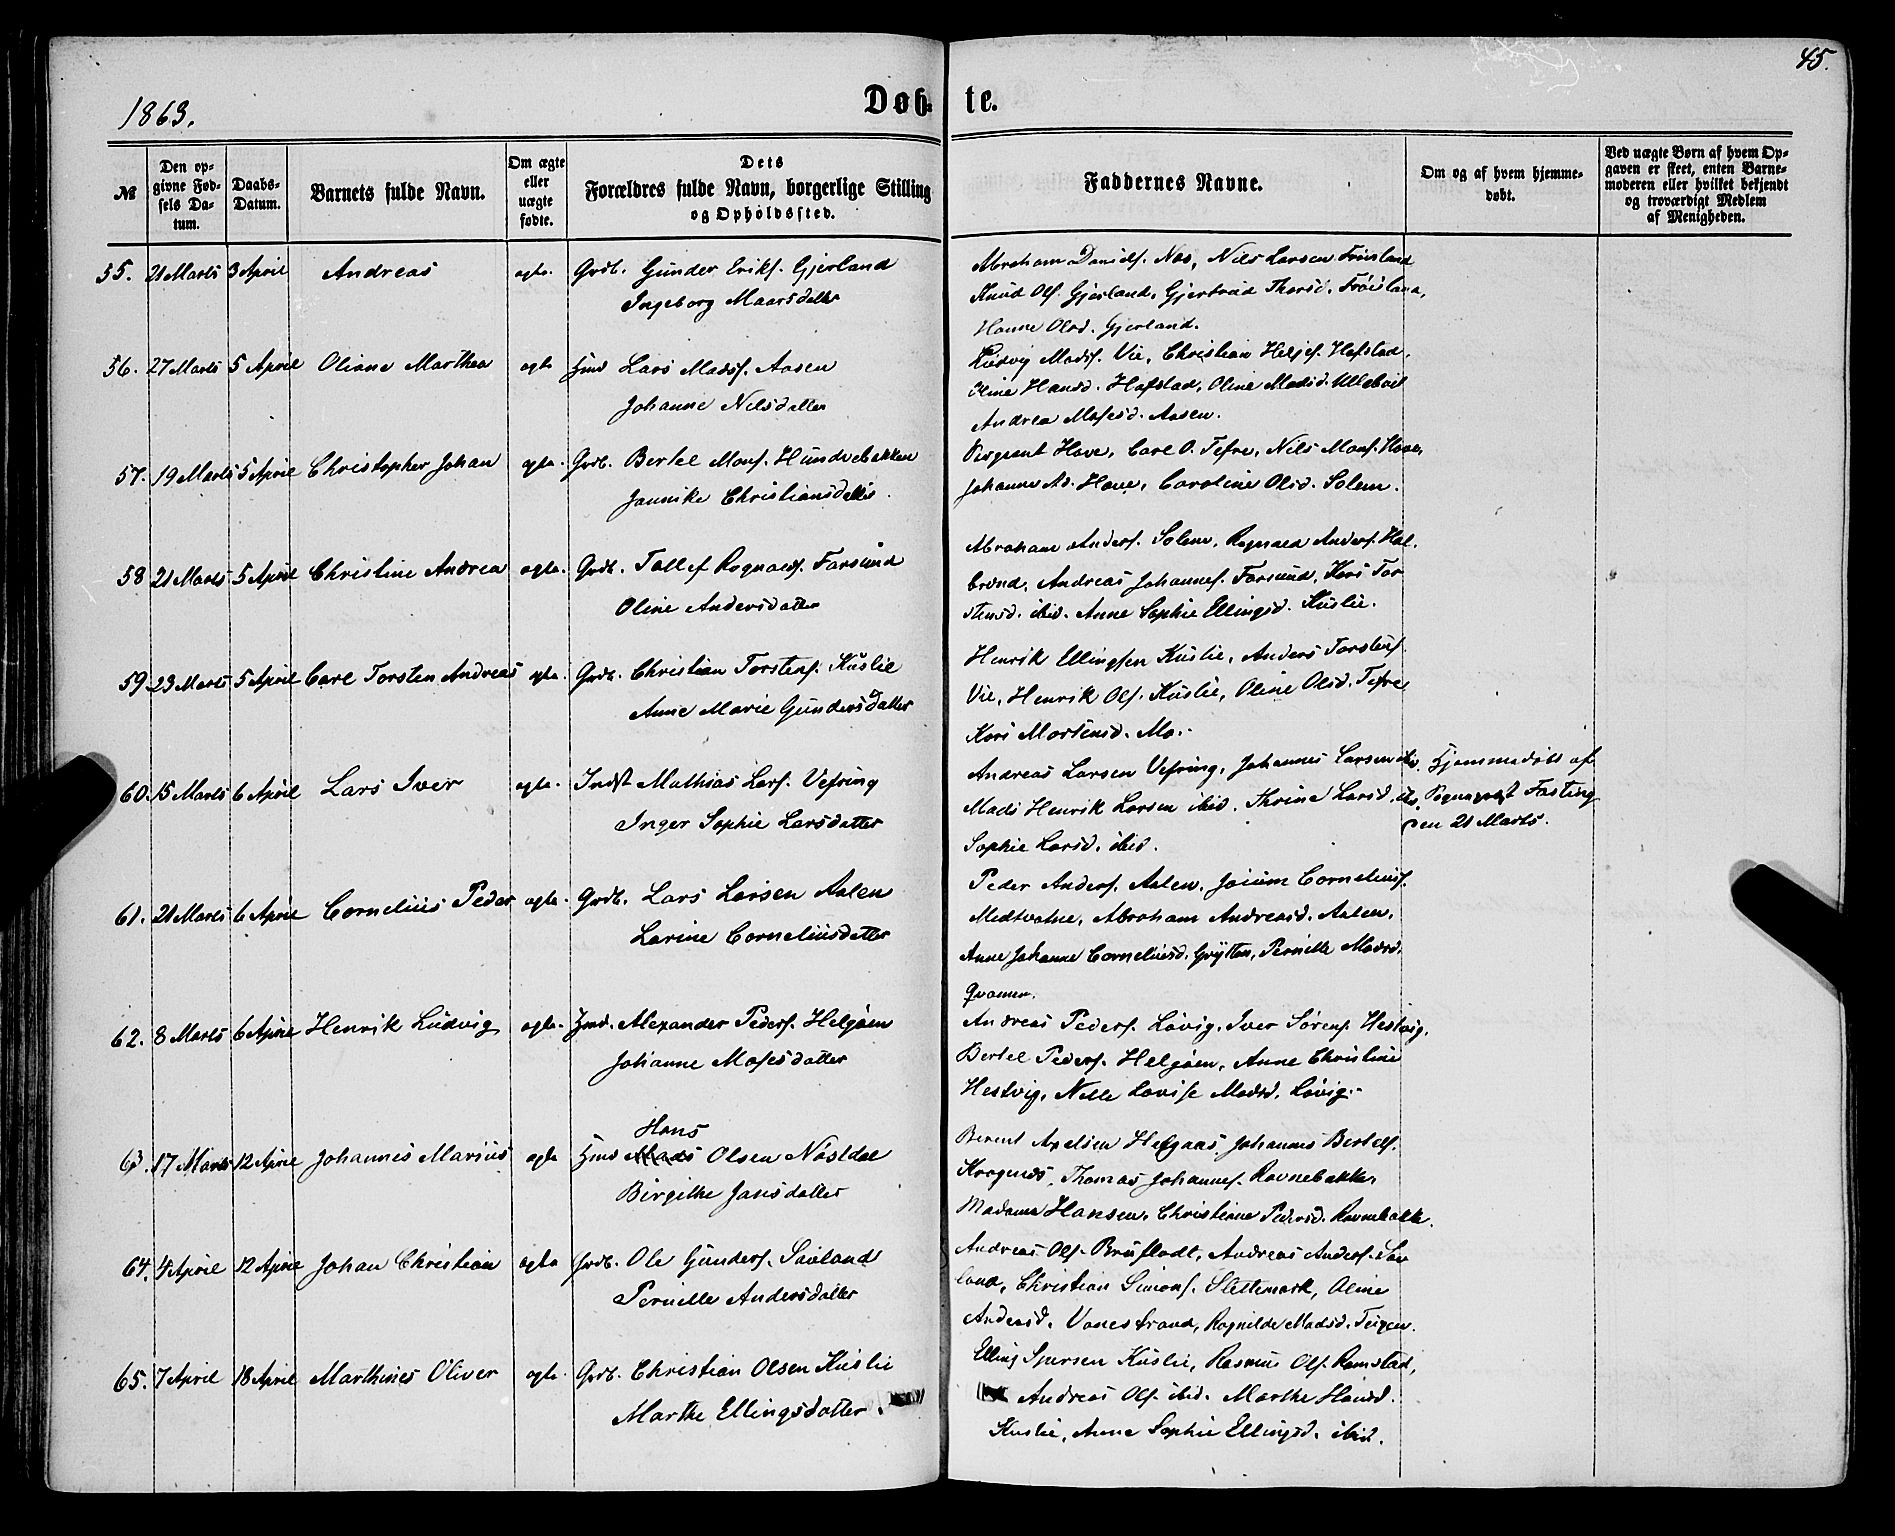 45.
1863.
Døb- te.
№ Den opgivne Fødsels Datum. Daabs-Datum. Barnets fulde Navn. Om ægte eller uægte fødte. Dets Forældres fulde Navn, borgerlige Stilling og Opholdssted. Faddernes Navne. Om og af hvem hjemmedøbt. Ved uægte Børn af hvem Opgaven er skeet, enten Barnemoderen eller hvilket bekjendt og troværdigt Medlem af Menigheden.
55. 21 Marts 3 April Andreas ægte. Grdb. Gunder Eriks. Gjerland
Ingeborg Maarsdatter
Abraham Daniels. Nes, Nils Larsen Frøisland
Knud Ols. Gjerland, Gjertrud Thorsd. Frøisland,
Hanne Olsd. Gjerland.
56. 27 Marts 5 April Oliane Marthea ægte Hmd Lars Madss. Aasen
Johanne Nilsdatter
Ludvig Madss. Vie, Christian Heljes. Hafstad,
Oline Hansd. Hafstad, Oline Madsd. Ulleboit
Andrea Mosesd. Aasen.
57. 19 Marts 5 April Christopher Johan ægte. Grdb. Bertel Mons. Hundvebakken
Jannike Christiansdatter.
Sergeant Hove, Carl O. Tefre, Nils Mons. Hove,
Johanne Ad. Hove, Caroline Olsd. Solem.
58 21 Marts 5 April Christine Andrea ægte. Grdb. Tollef Rognalds. Farsund
Oline Andersdatter
Abraham Anders. Solem, Rognald Anders. Hal-
brend, Andreas Johannes. Farsund, Kari Tor
stensd. ibid. Anne Sophie Ellingsd. Kuslie.
59. 23 Marts 5 April Carl Torsten Andreas ægte. Grdb. Christian Torstens. Kuslie
Anne Marie Gundersdatter
Henrik Ellingsen Kuslie, Anders Torstens.
Vie, Henrik Ols. Kuslie, Oline Olsd. Tefre
Kari Mortensd. Mo.
60. 15 Marts 6 April Lars Iver ægte. Indst Mathias Lars. Vefring
Inger Sophie Larsdatter
Andreas Larsen Vefring, Johannes Larsen ibid.
Mads Henrik Larsen ibid. Thrine Larsd. ibid.
Sophie Larsd. ibid.
Hjemmedøbt af
Sognepræst Fasting
den 21 Marts.
61. 21 Marts 6 April Cornelius Peder ægte. Grdb. Lars Larsen Aalen
Larine Corneliusdatter
Peder Anders. Aalen, Joium Cornelius.
Medtvatne, Abraham Andreasd. Aalen,
Anne Johanne Corneliusd. Grytten, Pernille Madsd.
Qvamen.
62. 8 Marts 6 April Henrik Ludvig ægte. Hmd. Alexander Peders. Helgøen
Johanne Mosesdatter
Andreas Peders. Løvig, Iver Sørens. Hestvig,
Bertel Peders. Helgøen, Anne Christine
Hestvig, Nille Lovise Madsd. Løvig.
63. 17 Marts 12 April Johannes Marius ægte Hmd Hans Olsen Nøstdal
Birgithe Jansdatter
Berent Axelsen Helgaas, Johannes Bertels.
Krognæs, Thomas Johannes. Ravnebakke,
Madame Hansen, Christiane Pedersd. Ravnebakke.
64. 4 April 12 April Johan Christian ægte Grdb. Ole Gunders. Sæland
Pernille Andersdatter
Andreas Ols. Bruflodt, Andreas Anders. Sæ
land, Christian Simons. Slettemark, Oline
Andersd. Vonestrand, Ragnilde Madsd. Teigen.
65. 7 April 18 April Marthines Oliver ægte. Grdb. Christian Olsen Kuslie
Marthe Ellingsdatter.
Elling Sjursen Kuslie, Rasmus Ols. Ramstad,
Andreas Ols. ibid. Marthe Hansd.
Kuslie, Anne Sophie Ellingsd. ibid.